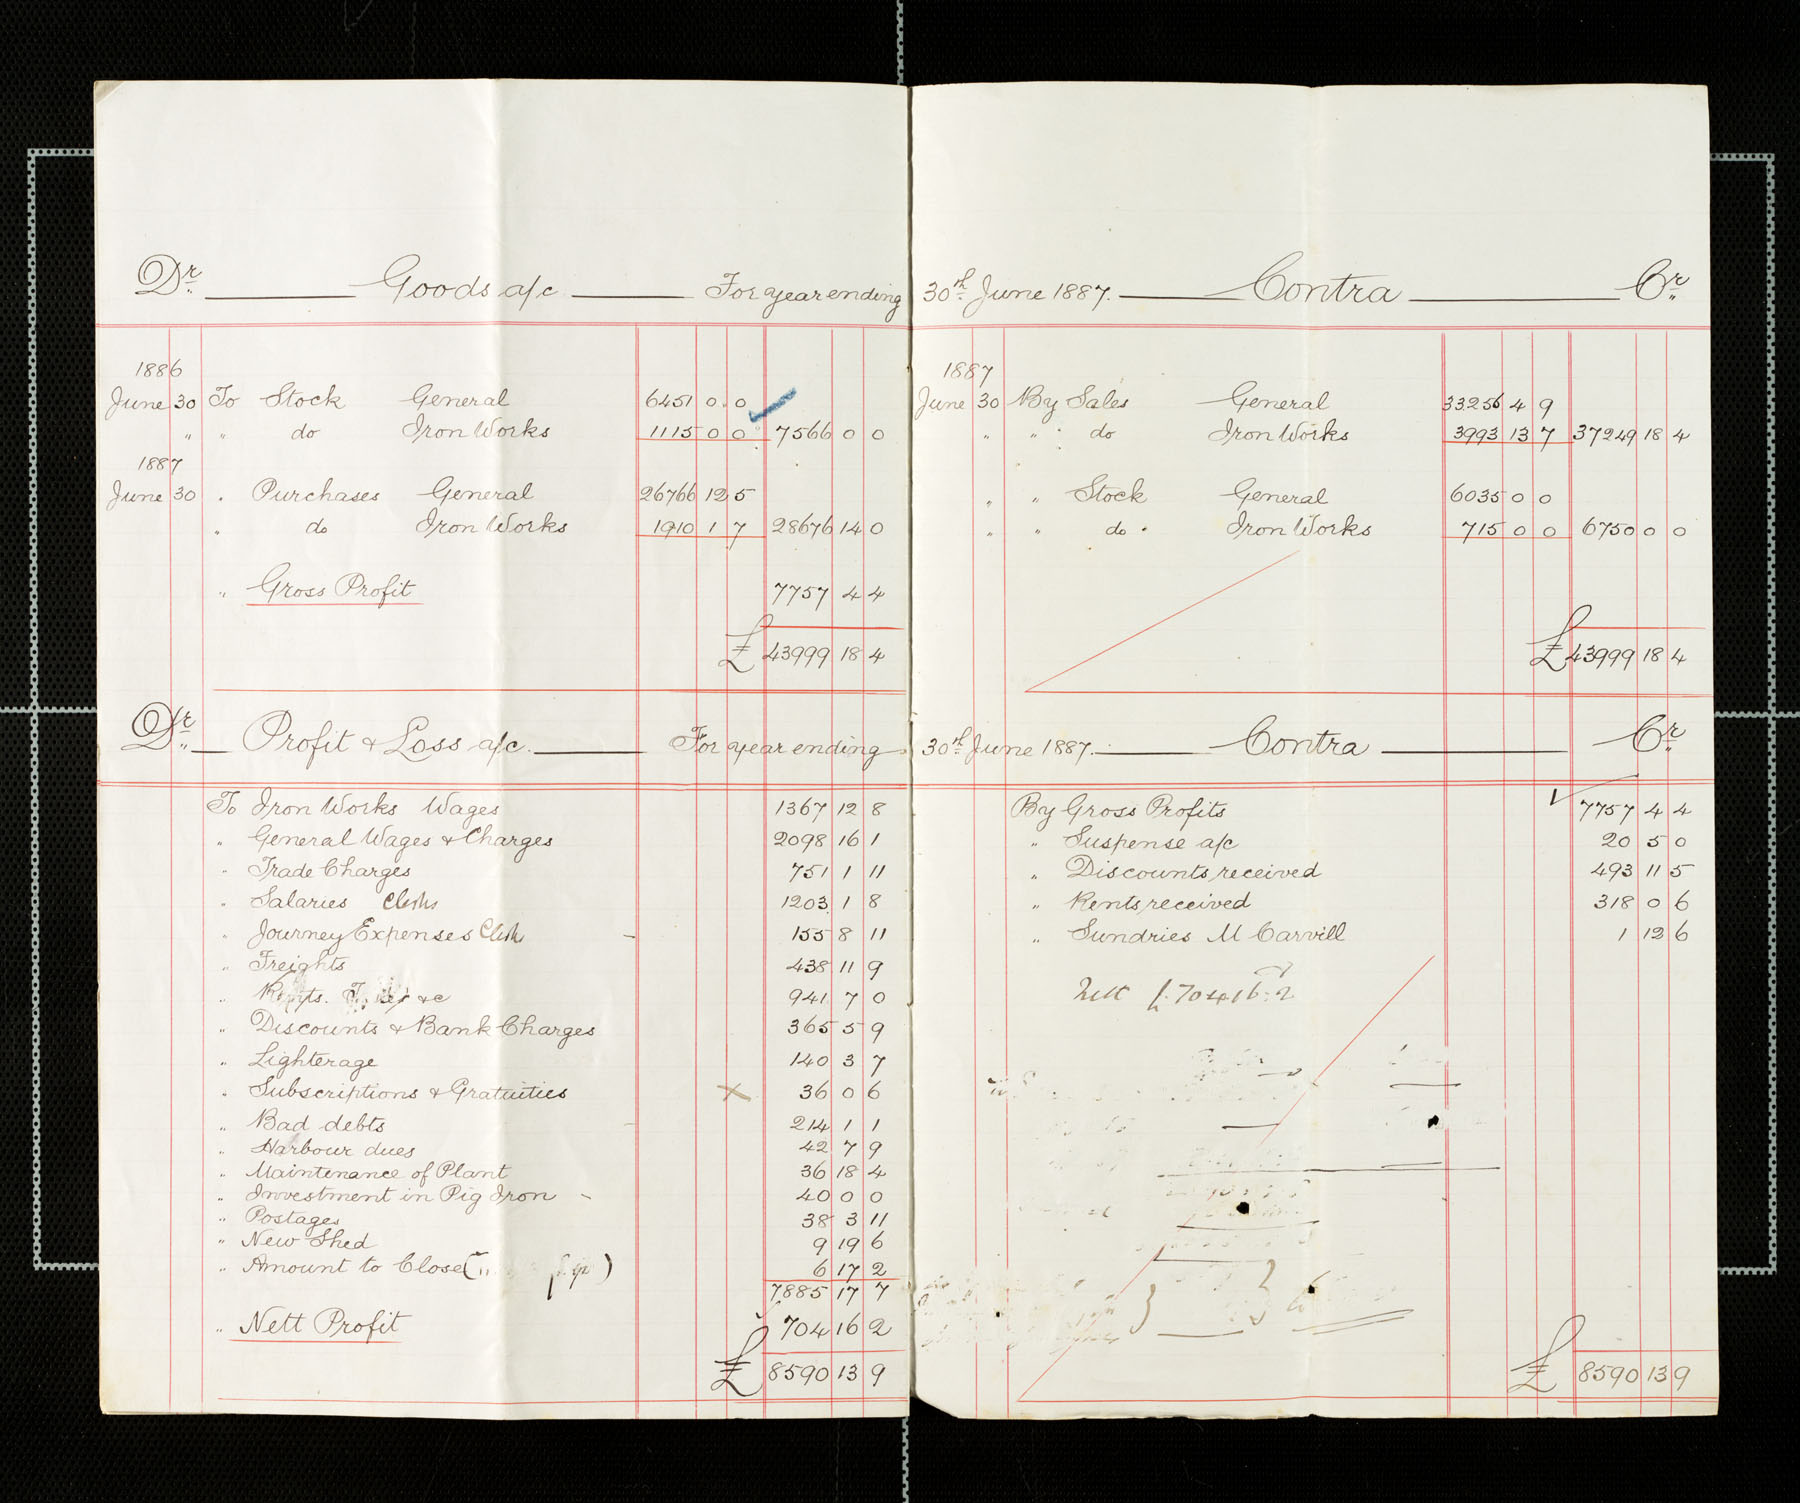 Dr. Goods a/c For year ending
1886
June 30 To Stock General 6451 0 0
" " do Iron Works 1115 0 0 7566 0 0
1887
June 30 " Purchases General 26766 12 5
" do Iron Works 1910 1 7 28676 14 0
" Gross Profit 7757 4 4
£ 43999 18 4
30th June 1887. Contra Cr.
1887
June 30 By Sales General 33256 4 9
" " do Iron Works 3993 13 7 37249 18 4
" " Stock General 6035 0 0
" " do Iron Works 715 0 0 6750 0 0
£ 43999 18 4
Dr. Profit & Loss a/c. For year ending
To Iron Works Wages 1367 12 8
" General Wages & Charges 2098 16 1
" Trade Charges 751 1 11
" Salaries Clerks 1203 1 8
" Journey Expenses Clerk 155 8 11
" Freights 438 11 9
" &c 941 7 0
" Discounts & Bank Charges 365 5 9
" Lighterage 140 3 7
" Subscriptions & Gratuities x 36 0 6
" Bad debts 214 1 1
" Harbour dues 42 7 9
" Maintenance of Plant 36 18 4
" Investment in Pig Iron 40 0 0
" Postages 38 3 11
" New Shed 9 19 6
" Amount to Close 6 17 2
7885 17 7
" Nett Profit 704 16 2
£ 8590 13 9
30th June 1887. Contra Cr.
By Gross Profits 7757 4 4
" Suspense a/c 20 5 0
" Discounts received 493 11 5
" Rents received 318 0 6
" Sundries M Carvill 1 12 6
Nett £704 16:2
£ 8590 13 9